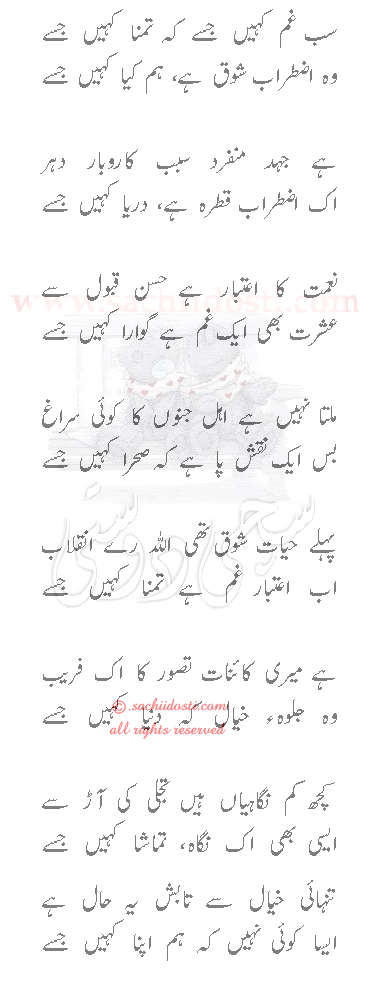 سب غم کہیں جسے کہ تمنا کہیں جسے
وہ اضطراب شوق ہے، ہم کیا کہیں جسے
ہے جہد منفرد سبب کاروبار دہر
اک اضطراب قطرہ ہے، دریا کہیں جسے
نعمت کا اعتبار ہے حسن قبول سے
www.sachiidosti.com
عشرت بھی ایک غم ہے گوارا کہیں جسے
ملتا نہیں ہے اہل جنوں کا کوئی سراغ
بس ایک نقش پا ہے کہ صحرا کہیں جسے
سچی دوستی
پہلے حیات شوق تھی اللہ رے انقلاب
اب اعتبار غم ہے تمنا کہیں جسے
ہے میری کائنات تصور کا اک فریب
وہ جلوہء خیال کہ دنیا کہیں جسے
© .sachiidosti.com
all rights reserved
کچھ کم نگاہیاں ہیں تجلی کی آڑ سے
ایسی بھی اک نگاہ، تماشا کہیں جسے
تنہائی خیال سے تابش یہ حال ہے
ایسا کوئی نہیں کہ ہم اپنا کہیں جسے